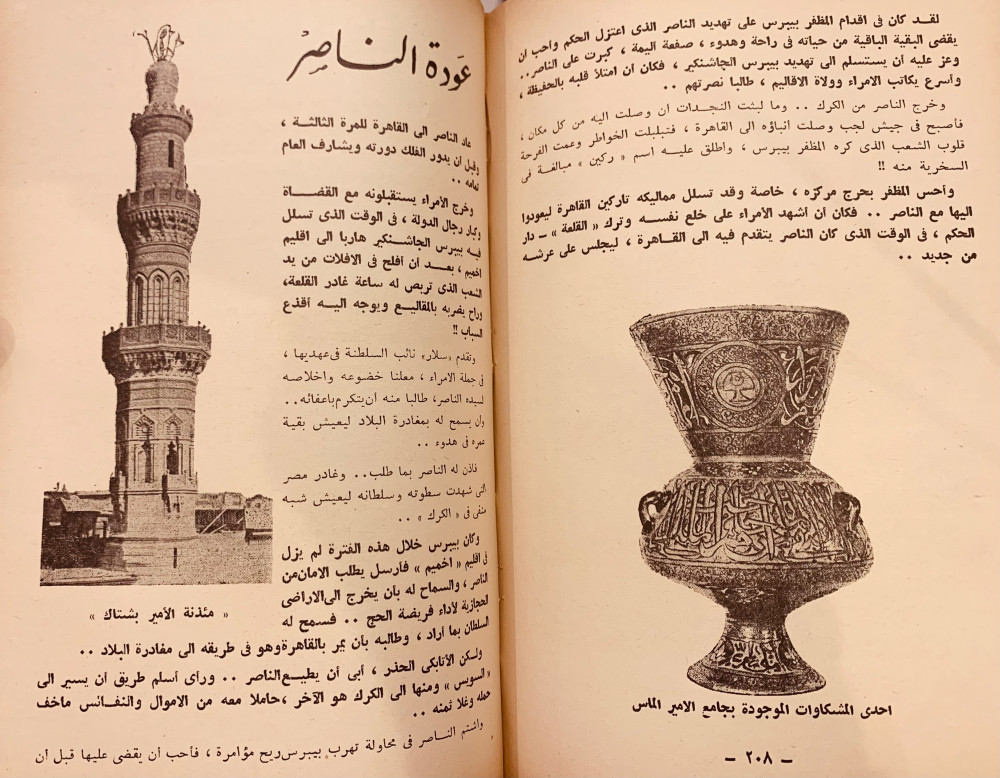 لقد كان فى اقدام المظفر بيبرس على تهديد الناصر الذى اعتزل الحكم وأحب ان
يقضى البقية الباقية من حياته فى راحة وهدوء ، صفعة اليمة ، كبرت على الناصر..
وعز عليه أن يستسلم الى تهديد بيبرس الجاشنكير ، فكان ان امتلأ قلبه بالحفيظة ،
وأسرع يكاتب الامراء وولاة الاقاليم ، طالبا نصرتهم ..
وخرج الناصر من الكرك .. وما لبثت النجدات ان وصلت اليه من كل مكان ،
فأصبح فى جيش لجب وصلت أنباؤه الى القاهرة ، فتبلبلت الخواطر وعمت الفرحة
قلوب الشعب الذى كره المظفر بيبرس ، واطلق عليه اسم « ركين » مبالغة فى
السخرية منه !!
وأحس المظفر بحرج مركزه ، خاصة وقد تسلل مماليكه تاركين القاهرة ليعودوا
اليها مع الناصر .. فكان ان أشهد الأمراء على خلع نفسه وترك « القلعة » – دار
الحكم ، فى الوقت الذى كان الناصر يتقدم فيه الى القاهرة ، ليجلس على عرشه
من جديد ..
احدى المشكاوات الموجودة بجامع الامير الماس
– ٢٠٨ –
عودة الناصر
عاد الناصر الى القاهرة للمرة الثالثة ،
وقبل ان يدور الفلك دورته ويشارف العام
تمامه ..
وخرج الأمراء يستقبلونه مع القضاة
وكبار رجال الدولة ، فى الوقت الذى تسلل
فيه بيبرس الجاشنكير هاربا الى اقليم
اخميم ، بعد ان أفلح فى الافلات من يد
الشعب الذى تربص له ساعة غادر القلعة،
وراح يضربه بالمقاليع ويوجه اليه أقذع
السباب !!
وتقدم «سلار» نائب السلطنة فى عهديها ،
فى جملة الامراء ، معلنا خضوعه واخلاصه
لسيده الناصر، طالبا منه أن يتكرم باعفائه..
وأن يسمح له بمغادرة البلاد ليعيش بقية
عمره فى هدوء ..
فاذن له الناصر بما طلب .. وغادر مصر
التى شهدت سطوته وسلطانه ليعيش شبه
منفى فى « الكرك » ..
وكان بيبرس خلال هذه الفترة لم يزل
فى اقليم « اخميم » فارسل يطلب الامان من
الناصر ، والسماح له بان يخرج الى الاراضى
الحجازية لأداء فريضة الحج .. فسمح له
السلطان بما أراد ، وطالبه بأن يمر بالقاهرة وهو فى طريقه الى مغادرة البلاد ..
ولكن الأتابكى الحذر ، أبى أن يطيع الناصر .. ورأى أسلم طريق أن يسير الى
«السويس» ومنها الى الكرك هو الآخر ، حاملا معه من الاموال والنفائس ماخف
حمله وغلا ثمنه ..
واشتم الناصر فى محاولة تهرب بيبرس ريح مؤامرة ، فأحب أن يقضى عليها قبل أن
« مئذنة الأمير بشتاك »